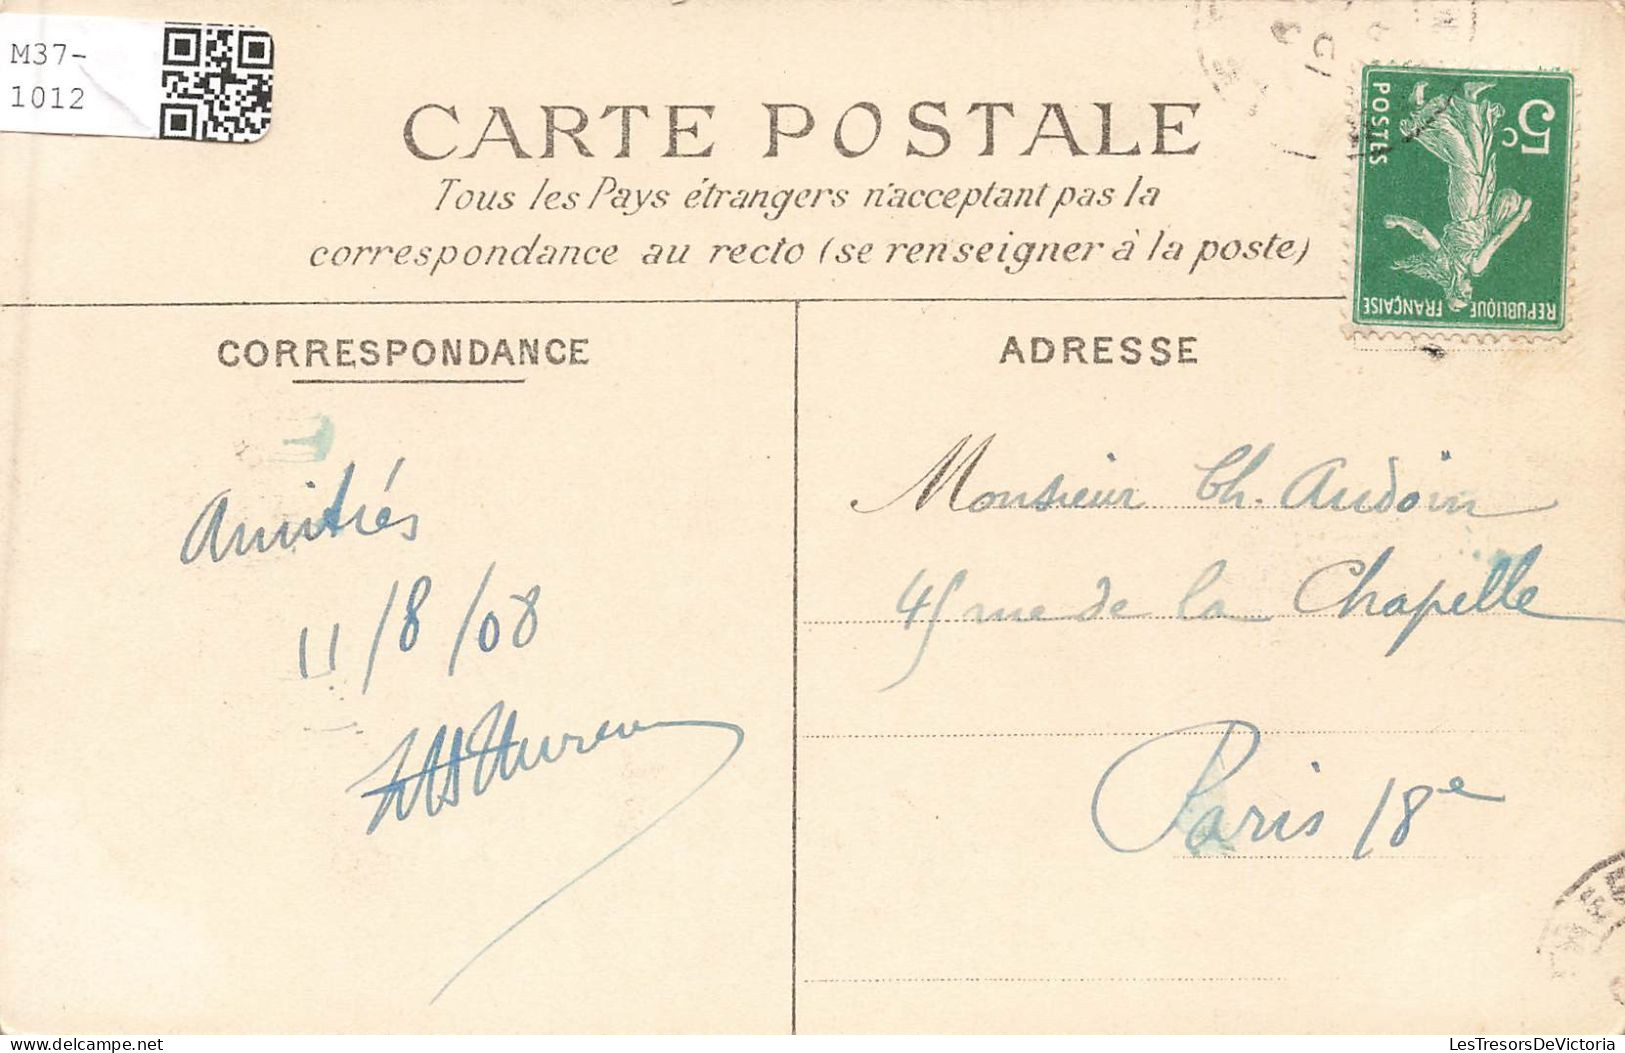 M37-
1012
CARTE POSTALE
Tous les Pays étrangers n'acceptant pas la
correspondance au recto (se renseigner à la poste)
5c
POSTES
REPUBLIQUE FRANÇAISE
CORRESPONDANCE
ADRESSE
Amitiés
11/8/08
Monsieur Ch. Audoin
45 rue de la Chapelle
Paris 18e
LesTresorsDeVictoria